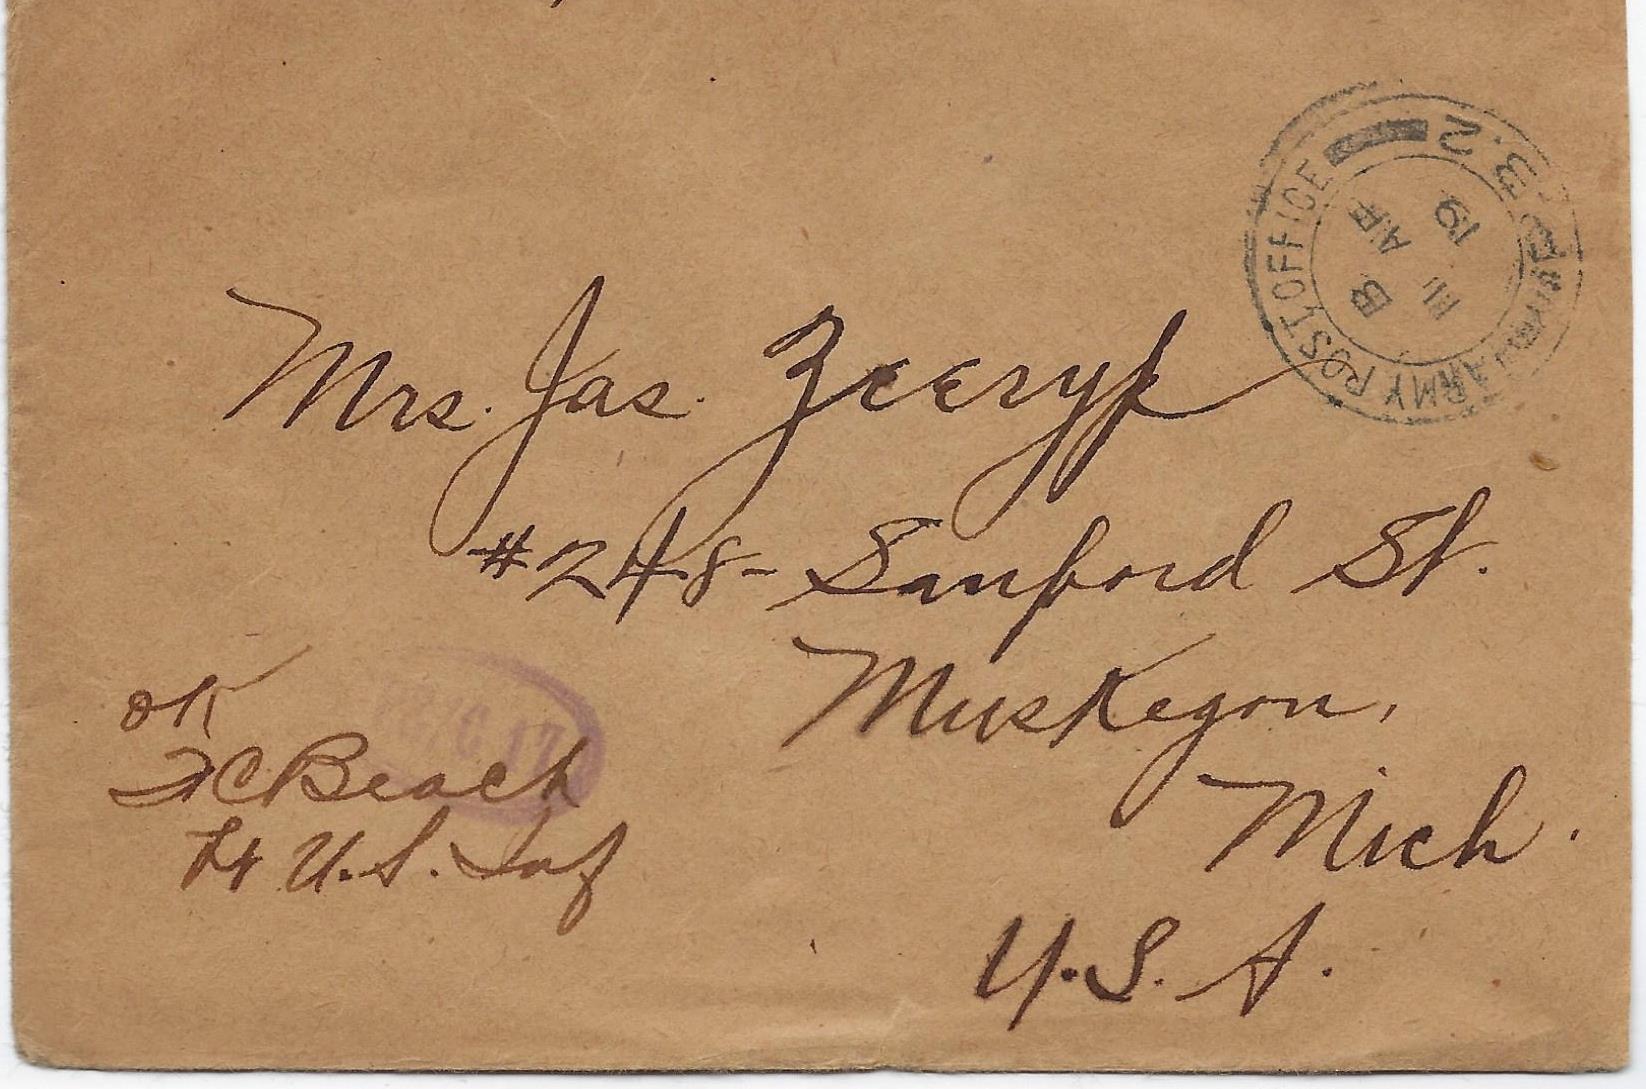 ARMY POST OFFICE
3.2
B
AP
19
Mrs. Jas. Zeeryp
#248 - Sanford St.
Muskegon,
Mich.
U.S.A.
OK
FC Beach
Lt U.S. Inf